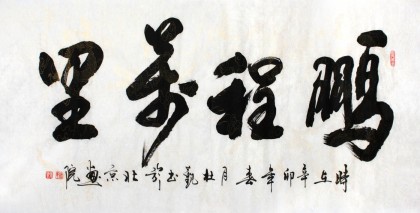 鹏程万里
時在辛卯年春月杜觐书於北京画院